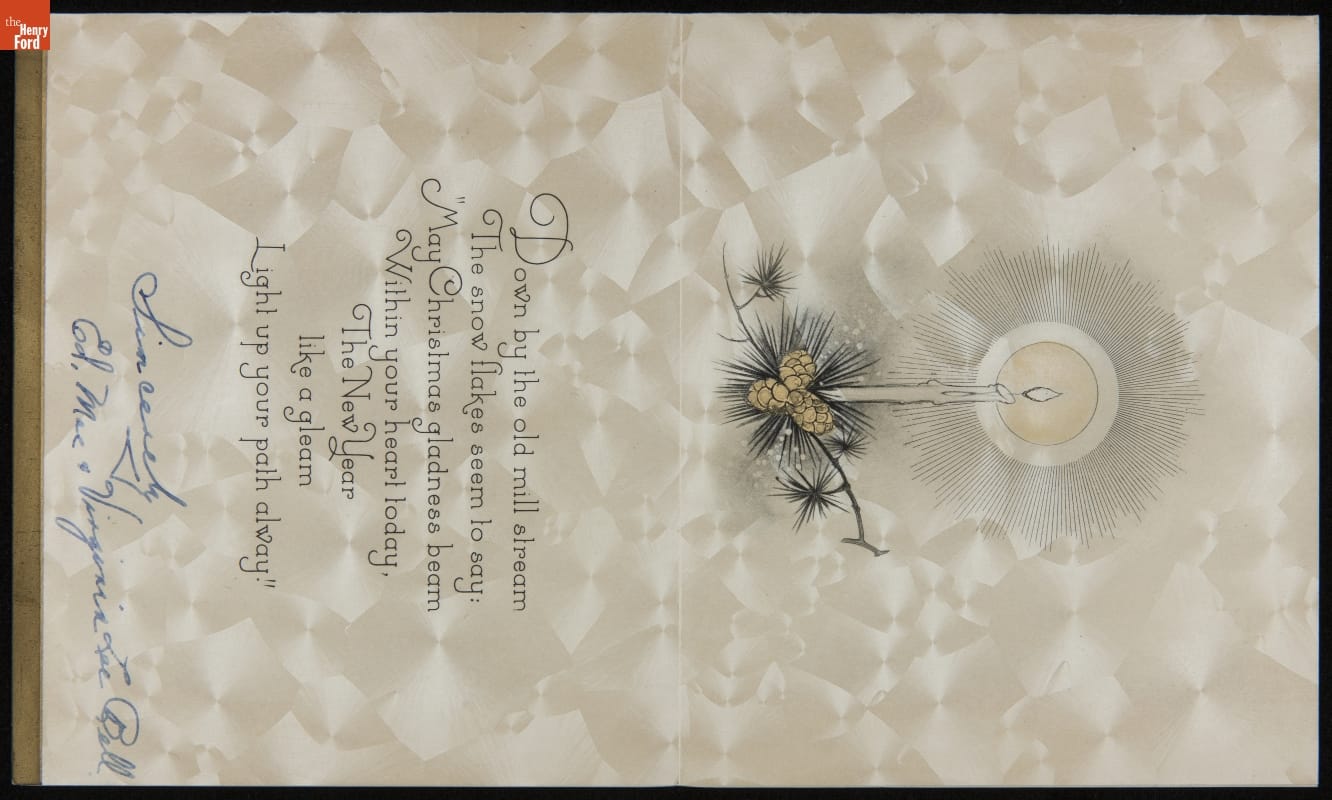 the
Henry
Ford
Down by the old mill stream
The snow flakes seem to say:
"May Christmas gladness beam
Within your heart today,
The New Year
like a gleam
Light up your path alway."
Sincerely
Ed, Mae & Virginia Lee Bell